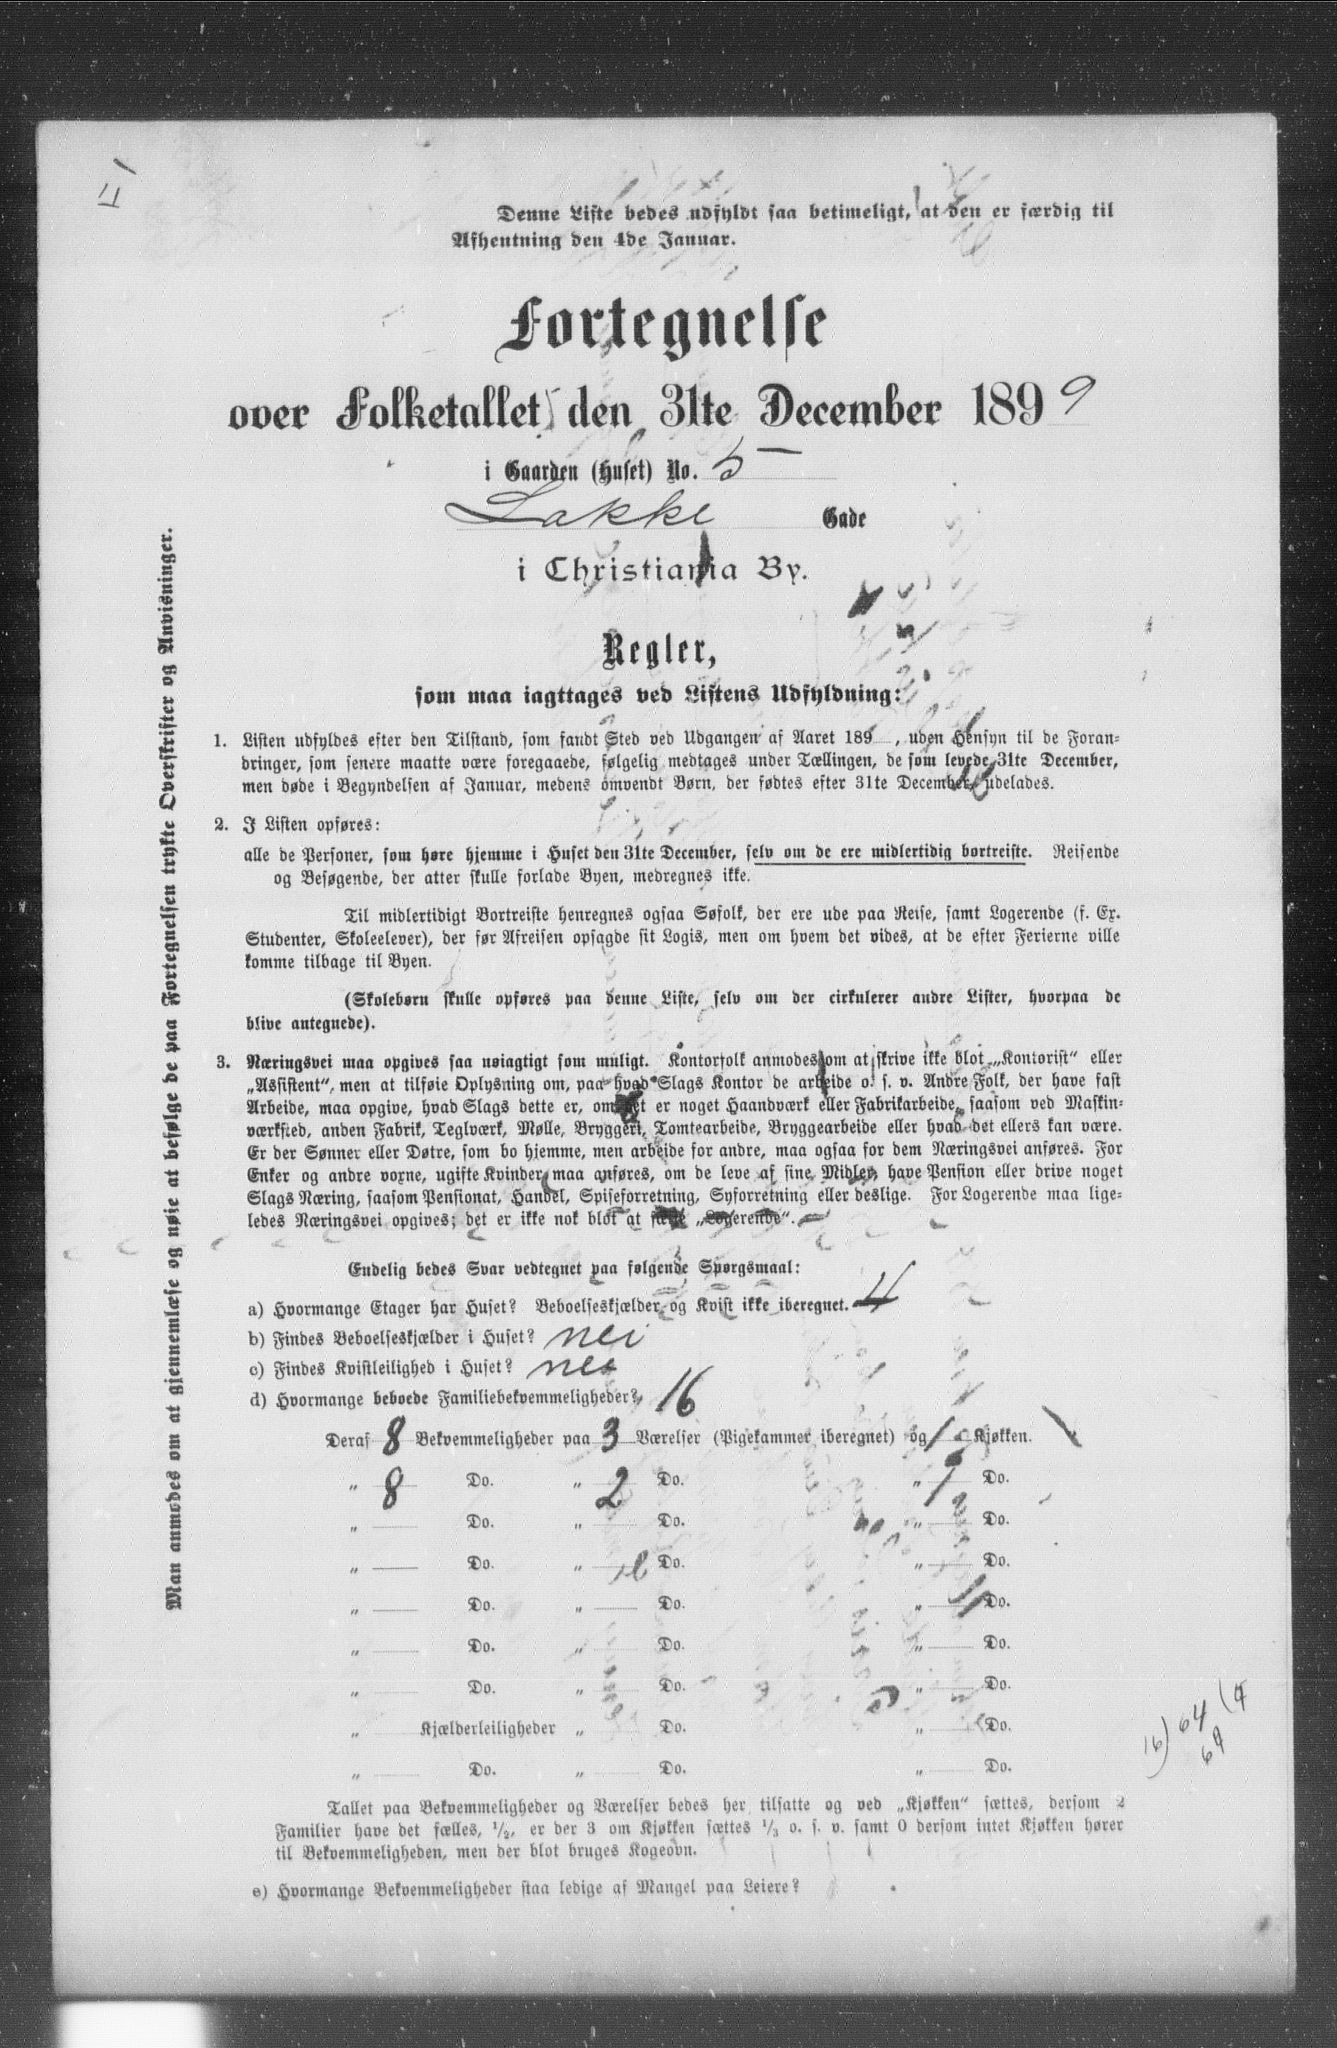 II
Denne Liste bedes udfyldt saa betimeligt, at den er færdig til
Afhentning den 4de Januar.
Fortegnelse
over Folketallet den 31te December 1899
i Gaarden (Huset) No. 5
Lakke Gade
i Christiania By.
Regler,
som maa iagttages ved Listens Udfyldning:
1. Listen udfyldes efter den Tilstand, som fandt Sted ved Udgangen af Aaret 189 , uden Hensyn til de Foran-
dringer, som senere maatte være foregaaede, følgelig medtages under Tællingen, de som levede 31te December,
men døde i Begyndelsen af Januar, medens omvendt Børn, der fødtes efter 31te December, udelades.
2. I Listen opføres:
alle de Personer, som høre hjemme i Huset den 31te December, selv om de ere midlertidig bortreiste. Reisende
og Besøgende, der atter skulle forlade Byen, medregnes ikke.
Til midlertidigt Bortreiste henregnes ogsaa Søfolk, der ere ude paa Reise, samt Logerende (f. Ex.
Studenter, Skoleelever), der før Afreisen opsagde sit Logis, men om hvem det vides, at de efter Ferierne ville
komme tilbage til Byen.
(Skolebørn skulle opføres paa denne Liste, selv om der cirkulerer andre Lister, hvorpaa de
blive antegnede).
3. Næringsvei maa opgives saa nøiagtigt som muligt. Kontorfolk anmodes om at skrive ikke blot „Kontorist“ eller
„Assistent“, men at tilføie Oplysning om, paa hvad Slags Kontor de arbeide o. s. v. Andre Folk, der have fast
Arbeide, maa opgive, hvad Slags dette er, om det er noget Haandværk eller Fabrikarbeide, saasom ved Maskin-
værksted, anden Fabrik, Teglværk, Mølle, Bryggeri, Tomtearbeide, Bryggearbeide eller hvad det ellers kan være.
Er der Sønner eller Døtre, som bo hjemme, men arbeide for andre, maa ogsaa for dem Næringsvei anføres. For
Enker og andre voxne, ugifte Kvinder maa anføres, om de leve af sine Midler, have Pension eller drive noget
Slags Næring, saasom Pensionat, Handel, Spiseforretning, Syforretning eller deslige. For Logerende maa lige-
ledes Næringsvei opgives; det er ikke nok blot at sætte „Logerende“.
Endelig bedes Svar vedtegnet paa følgende Spørgsmaal:
a) Hvormange Etager har Huset? Beboelseskjælder og Kvist ikke iberegnet. 4
b) Findes Beboelseskjælder i Huset? nei
c) Findes Kvistleilighed i Huset? nei
d) Hvormange beboede Familiebekvemmeligheder? 16
Deraf 8 Bekvemmeligheder paa 3 Værelser (Pigekammer iberegnet) og 1 Kjøkken.
„ 8 Do. „ 2 Do. „ 1 Do.
„ Do. „ Do. „ Do.
„ Do. „ Do. „ Do.
„ Do. „ Do. „ Do.
„ Do. „ Do. „ Do.
„ Do. „ Do. „ Do.
„ Kjælderleiligheder „ Do. „ Do.
„ Do. „ Do. „ Do.
16) 64 (4
64
Tallet paa Bekvemmeligheder og Værelser bedes her tilsatte og ved „Kjøkken“ sættes, dersom 2
Familier have det fælles, 1/2, er der 3 om Kjøkken sættes 1/3 o. s. v. samt 0 dersom intet Kjøkken hører
til Bekvemmeligheden, men der blot bruges Kogeovn.
e) Hvormange Bekvemmeligheder staa ledige af Mangel paa Leiere?
Man anmodes om at gjennemlæse og nøie at befølge de paa Fortegnelsen trykte Overskrifter og Anvisninger.